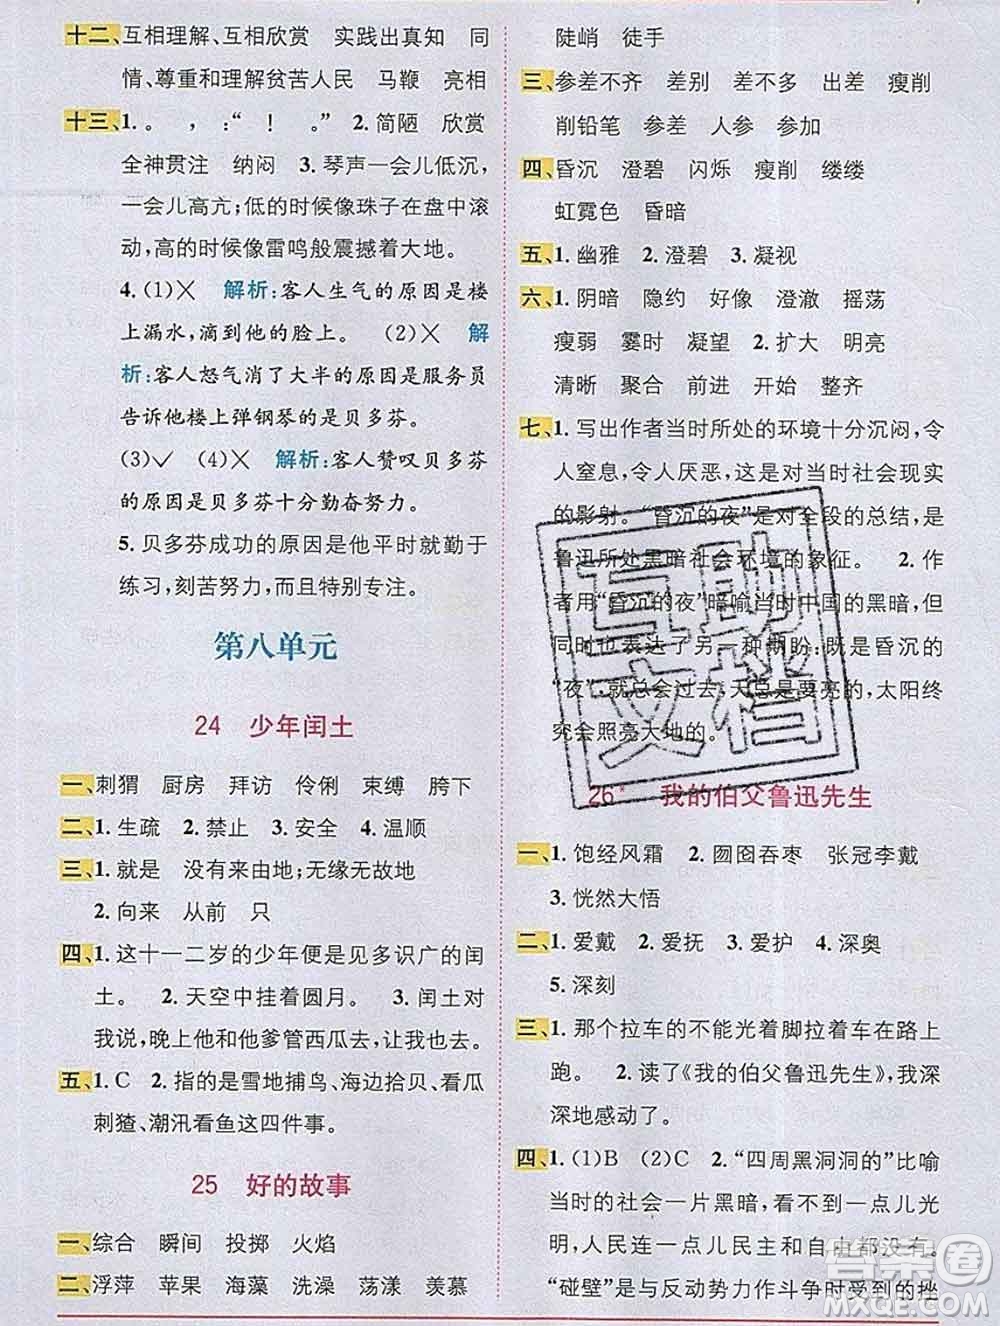 十二、互相理解、互相欣赏 实践出真知 同
情、尊重和理解贫苦人民 马鞭 亮相
十三、1. 。 , :“ ! 。” 2. 简陋 欣赏
全神贯注 纳闷 3. 琴声一会儿低沉,
一会儿高亢;低的时候像珠子在盘中滚
动,高的时候像雷鸣般震撼着大地。
4. (1)╳ 解析:客人生气的原因是楼
上漏水,滴到他的脸上。 (2)╳ 解
析:客人怒气消了大半的原因是服务员
告诉他楼上弹钢琴的是贝多芬。
(3)✓ (4)╳ 解析:客人赞叹贝多芬
的原因是贝多芬十分勤奋努力。
5. 贝多芬成功的原因是他平时就勤于
练习,刻苦努力,而且特别专注。
第八单元
24 少年闰土
一、刺猬 厨房 拜访 伶俐 束缚 胯下
二、1. 生疏 2. 禁止 3. 安全 4. 温顺
三、1. 就是 没有来由地;无缘无故地
2. 向来 从前 只
四、1. 这十一二岁的少年便是见多识广的闰
土。 2. 天空中挂着圆月。 3. 闰土对
我说,晚上他和他爹管西瓜去,让我也去。
五、1. C 2. 指的是雪地捕鸟、海边拾贝、看瓜
刺猹、潮汛看鱼这四件事。
25 好的故事
一、综合 瞬间 投掷 火焰
二、浮萍 苹果 海藻 洗澡 荡漾 羡慕
陡峭 徒手
三、参差不齐 差别 差不多 出差 瘦削
削铅笔 参差 人参 参加
四、昏沉 澄碧 闪烁 瘦削 缕缕
虹霓色 昏暗
五、1. 幽雅 2. 澄碧 3. 凝视
六、1. 阴暗 隐约 好像 澄澈 摇荡
瘦弱 霎时 凝望 2. 扩大 明亮
清晰 聚合 前进 开始 整齐
七、1. 写出作者当时所处的环境十分沉闷,令
人窒息,令人厌恶,这是对当时社会现实
的影射。“昏沉的夜”是对全段的总结,是
鲁迅所处黑暗社会环境的象征。 2. 作
者用“昏沉的夜”暗喻当时中国的黑暗,但
同时也表达了另一种期盼:既是昏沉的
“夜”,就总会过去,天总是要亮的,太阳终
究会照亮大地的。
互助
文档
26* 我的伯父鲁迅先生
一、1. 饱经风霜 2. 囫囵吞枣 张冠李戴
3. 恍然大悟
二、1. 爱戴 2. 爱抚 3. 爱护 4. 深奥
5. 深刻
三、1. 那个拉车的不能光着脚拉着车在路上
跑。 2. 读了《我的伯父鲁迅先生》,我深
深地感动了。
四、1. (1)B (2)C 2. “四周黑洞洞的”比喻
当时的社会一片黑暗,看不到一点儿光
明,人民连一点儿民主和自由都没有。
“碰壁”是与反动势力作斗争时受到的挫
答案圈
MXQE.COM